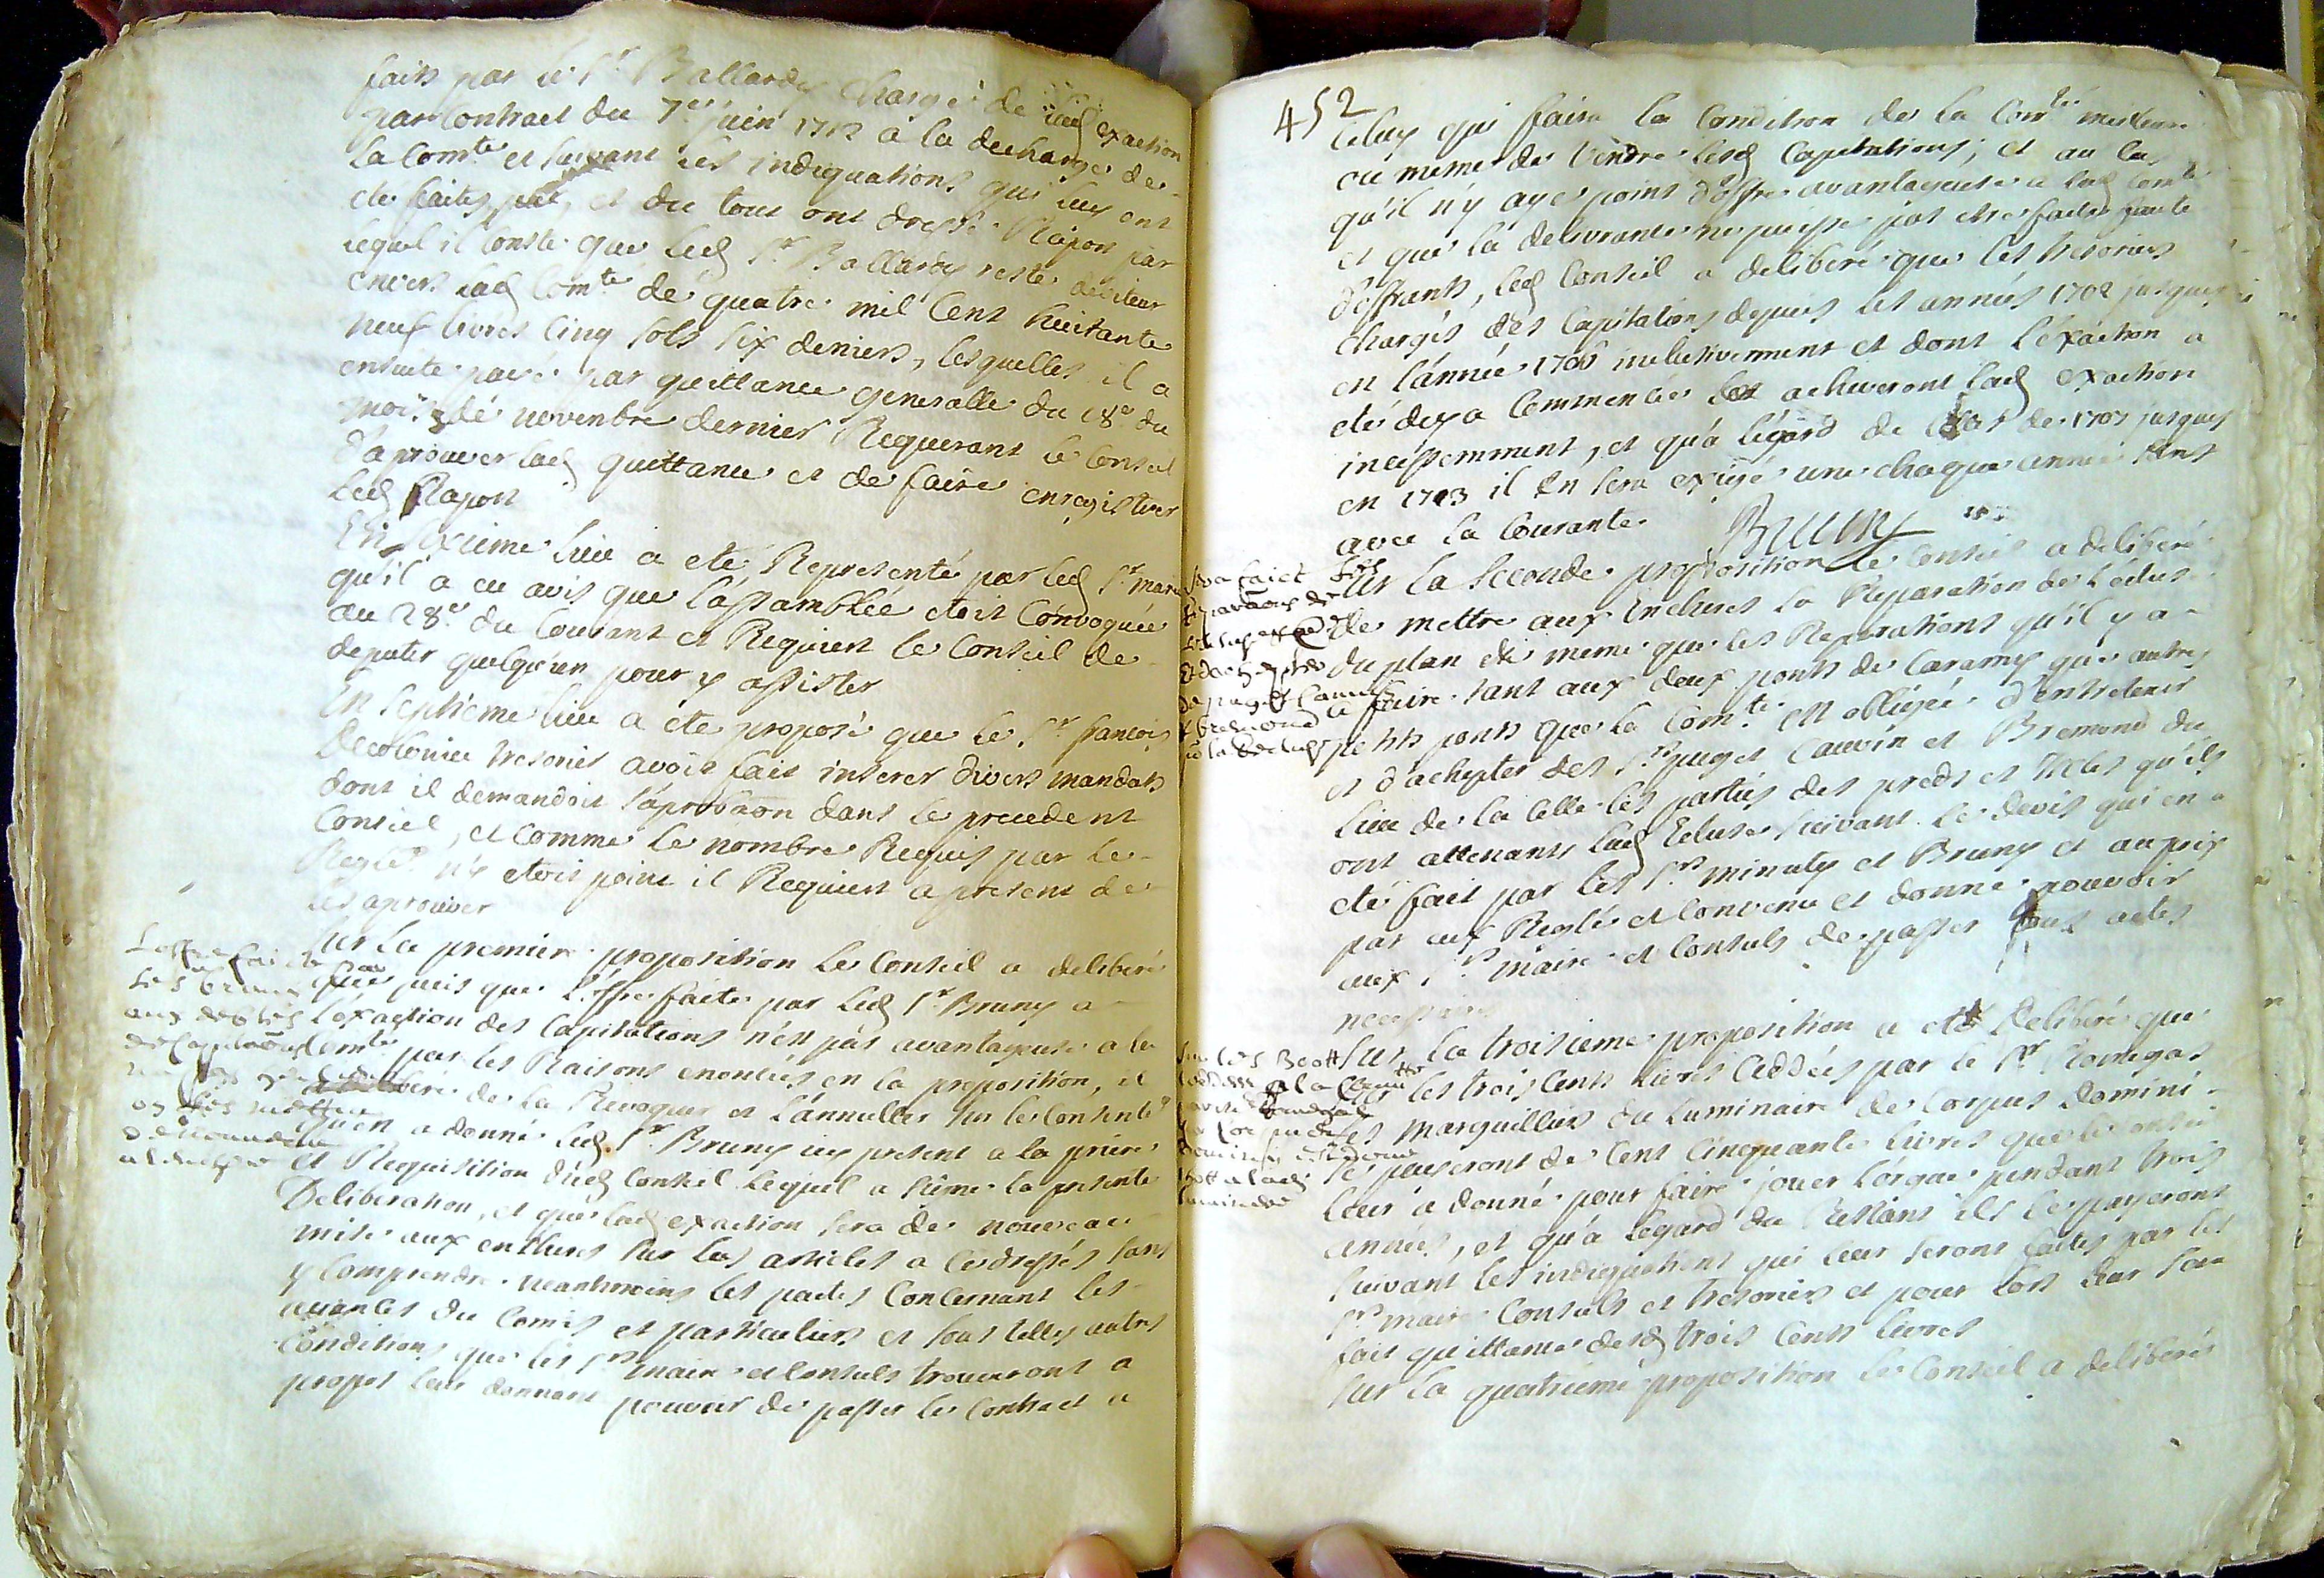 faits par le Sr Ballardy chargé de lad exaction
par Contract du 7e juin 1712 a la decharge de
la Comte et suivant les indiquations qui luy ont
ete faites, et du tout ont dressé Raport par
lequel il Conste que led Sr Ballardy reste debiteur
envers lad Comte de quatre mil Cent huitante
neuf livres Cinq sols six deniers, lesquelles il a
ensuite payé par quittance generalle du 18e du
mois de novembre dernier Requerant le Conseil
d'aprouver lad quittance et de faire enregistrer
led Raport
En sixieme lieu a eté Representé par led Sr maire
qu'il a eu avis que l'assamblée etoit Convoquée
au 28e du Courant et Requiert le Conseil de
deputer quelqu'un pour y assister
En septieme lieu a eté proposé que le Sr francois
Decolonia tresorier avoit fait inserer divers mandats
dont il demandoit l'aprobaon dans le precedent
Conseil, et Comme le nombre Requis par le
Reglet n'y etoit point il Requiert a present de
les aprouver
L'offre faite
Sr bruny
aux des
de Capitaons
Sur la premiere proposition Le Conseil a deliberé
que puis que L'offre faite par Led Sr Bruny a
L'exaction des Capitations n'est pas avantageuse a la
Comte par les Raisons enoncées en la proposition, il
de La Revoquer et L'annuller sur le Consentet
qu'en a donné Led. Sr Bruny icy present a la priere
et Requisition dud Conseil Lequel a signé la presente
Deliberation, et que lad exaction sera de nouveau
mise aux encheres sur les articles a ces dressés sans
y Comprendre neantmoins les pactes Concernant les
avances du Comis et particuliers et sous telles autres
Conditions que les Srs maire et Consuls trouveront a
propos leur donnant pouvoir de passer le Contract a
452
Celuy qui faira la Condition de la Comte meilleure
ou meme de Vendre lesd Capitations; et au Cas
qu'il n'y aye point d'offre avantageuse a lad Comte
et que la delivrance ne puisse pas etre faite faute
d'offrants, led Conseil a deliberé que les tresoriers
chargés des Capitations depuis les années 1702 jusques
en l'année 1706 inclusivement et dont L'exaction a
eté deja Commencée acheveront lad exaction
incessemment, et qu'a l'egard de Celles de 1707 jusques
en 1713 il en sera exigé une chaque année
avec la Courante. Bruny
Sera faict
Sur la Seconde proposition le Conseil a deliberé
de mettre aux Encheres la Reparation de L'ecluse
du plan de meme que les Reparations qu'il y a
a faire tant aux deux ponts de Caramy que autres
petits ponts que la Comte est obligée d'entretenir
et d'achepter des Srs puget Cauvin et Bremond du
lieu de la Celle les parties des preds et terres qu'ils
ont attenants lad Ecluse suivant le devis qui en a
eté fait par les Srs minuty et Bruny et au prix
par eux Reglé et Convenu et donne pouvoir
aux Srs maire et Consuls de passer tous actes
necessaires
Sur la troisieme proposition a eté Deliberé que
sur les trois Cents livres Cedées par le Sr Romegas
Les Marguilliers du Luminaire de Corpus Domini
se payeront de Cent Cinquante livres que le Conseil
leur a donné pour faire jouer L'orgue pendant trois
années, et qu'a Legard du Restant ils le payeront
suivant les indiquations qui leur seront faites par les
Srs maire Consuls et tresoriers et pour lors leur sera
fait quittance desd trois Cents livres
Sur la quatrieme proposition le Conseil a deliberé